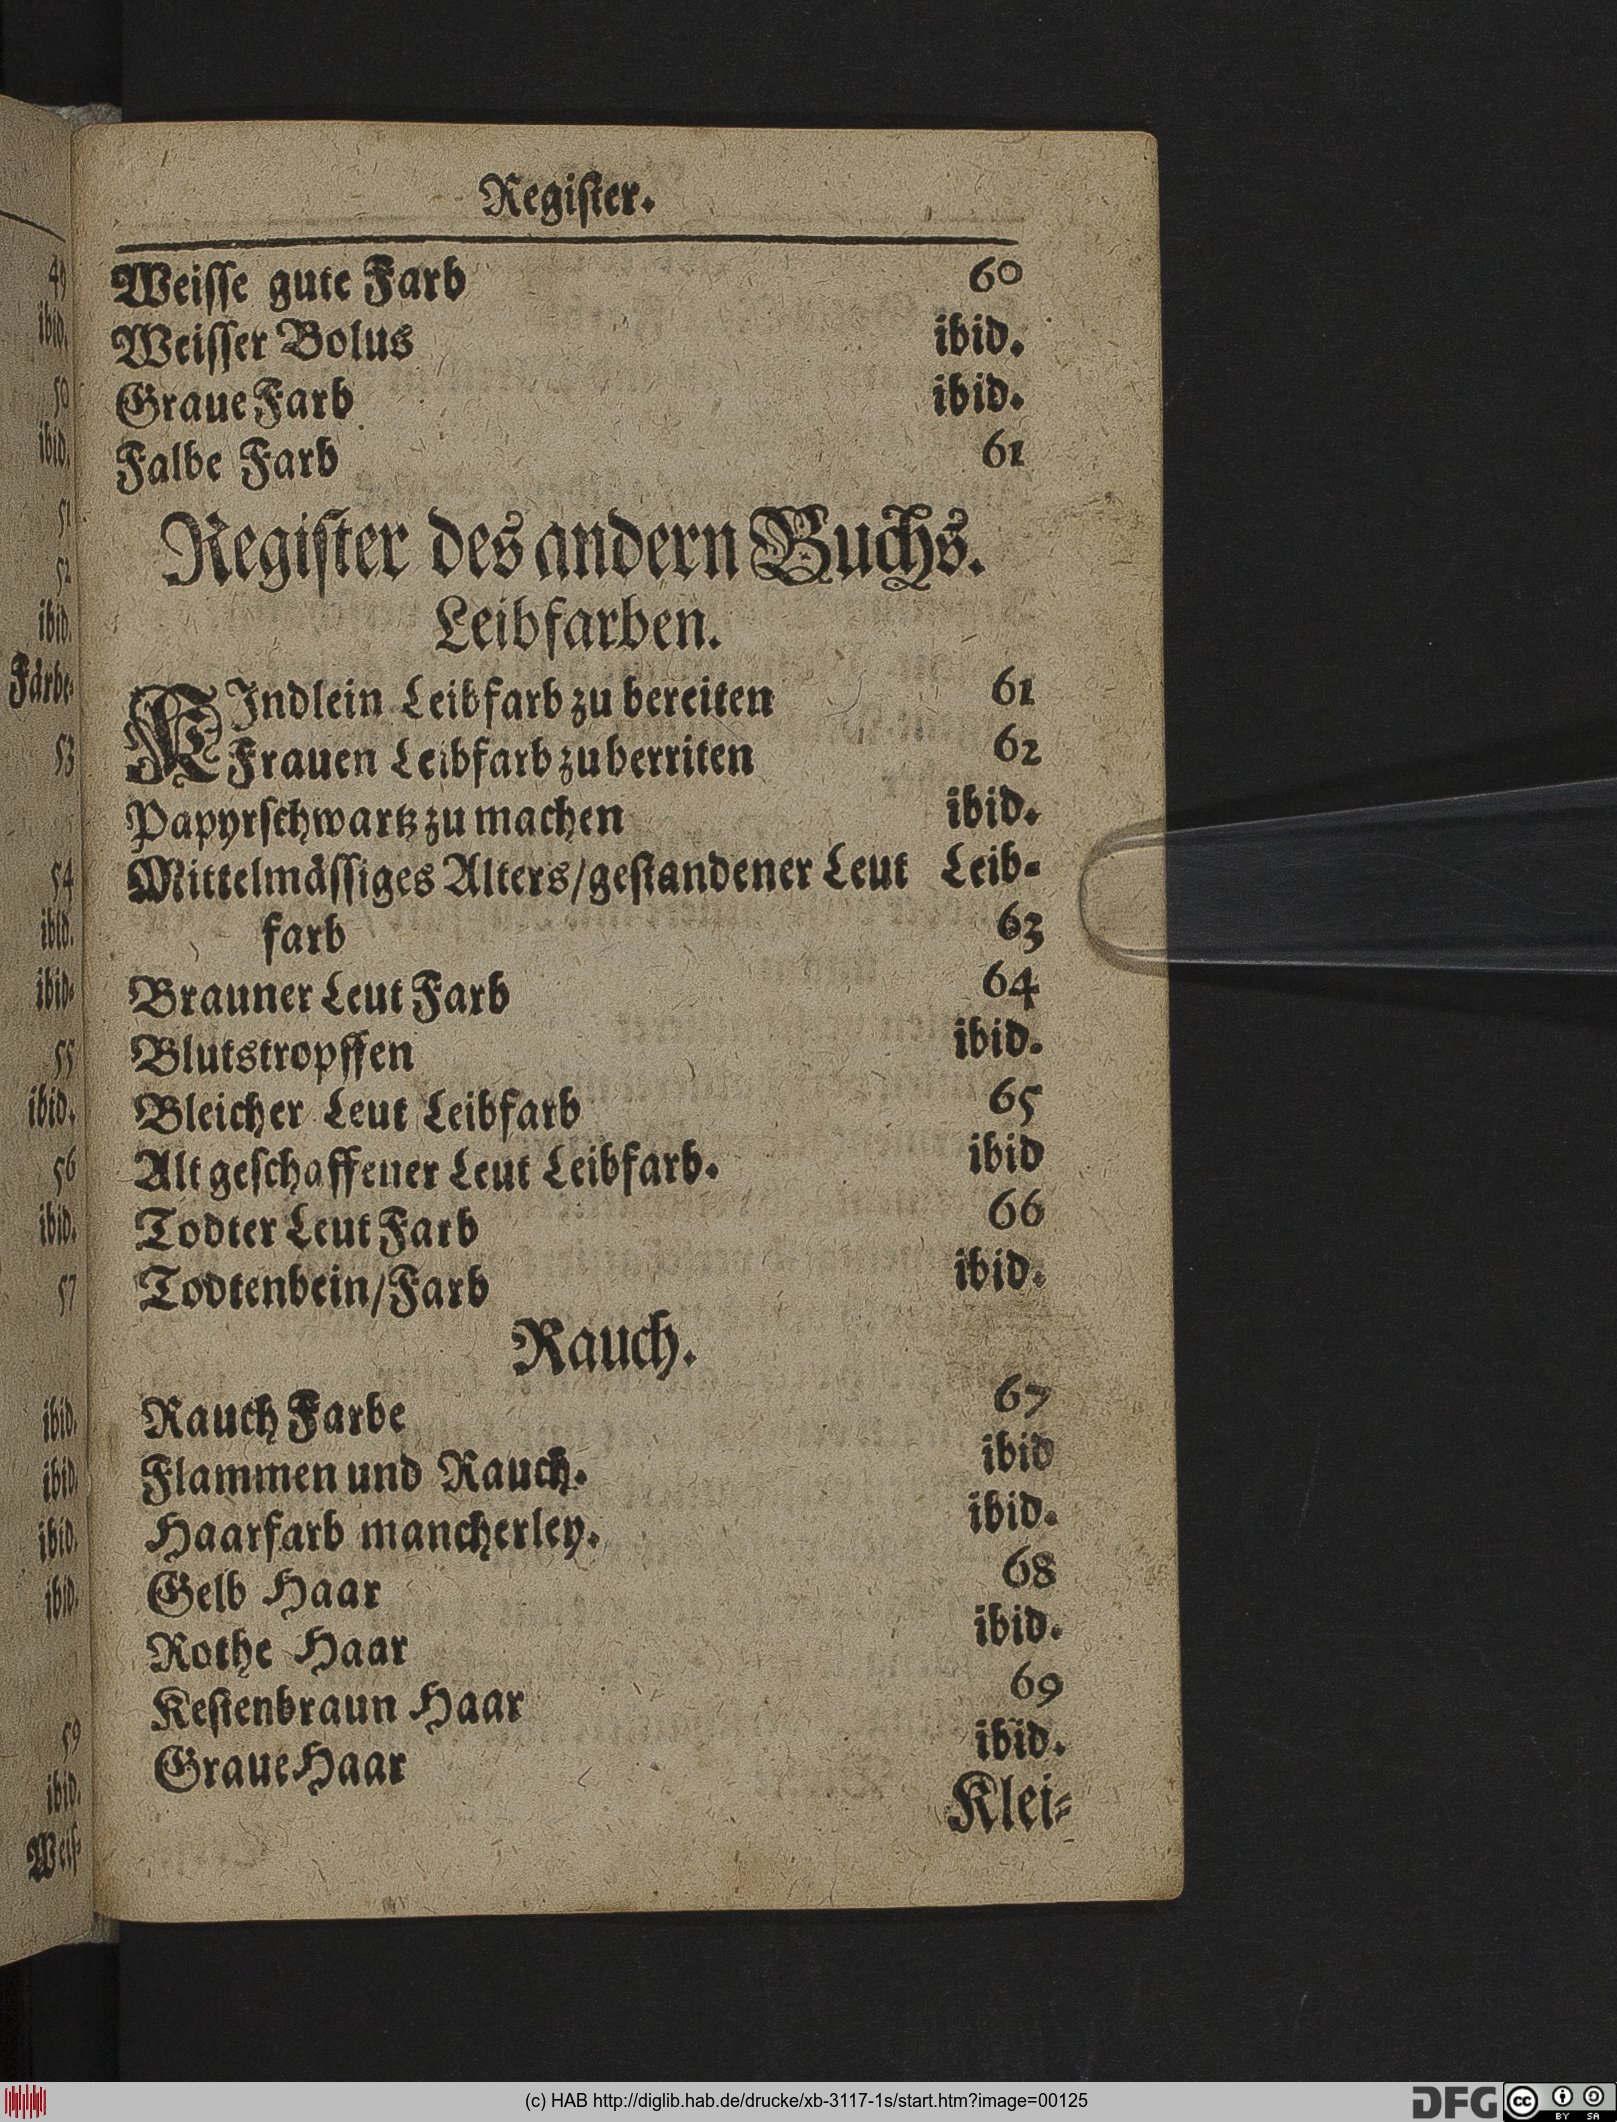 Register.
Weisse gute Farb 60
Weisser Bolus ibid.
Graue Farb ibid.
Falbe Farb 61
Register des andern Buchs.
Leibfarben.
KIndlein Leibfarb zu bereiten 61
Frauen Leibfarb zu berriten 62
Papyrschwartz zu machen ibid.
Mittelmässiges Alters/gestandener Leut Leib-
farb 63
Brauner Leut Farb 64
Blutstropffen ibid.
Bleicher Leut Leibfarb 65
Alt geschaffener Leut Leibfarb. ibid
Todter Leut Farb 66
Todtenbein/Farb ibid.
Rauch.
Rauch Farbe 67
Flammen und Rauch. ibid
Haarfarb mancherley. ibid.
Gelb Haar 68
Rothe Haar ibid.
Kestenbraun Haar 69
Graue Haar ibid.
Klei-
49
ibid.
50
ibid.
51
52
ibid.
Färbe-
53
54
ibid.
ibid.
55
ibid.
56
ibid.
57
ibid.
ibid.
ibid.
ibid.
59
ibid.
Weis-
(c) HAB http://diglib.hab.de/drucke/xb-3117-1s/start.htm?image=00125
DFG
cc
BY SA